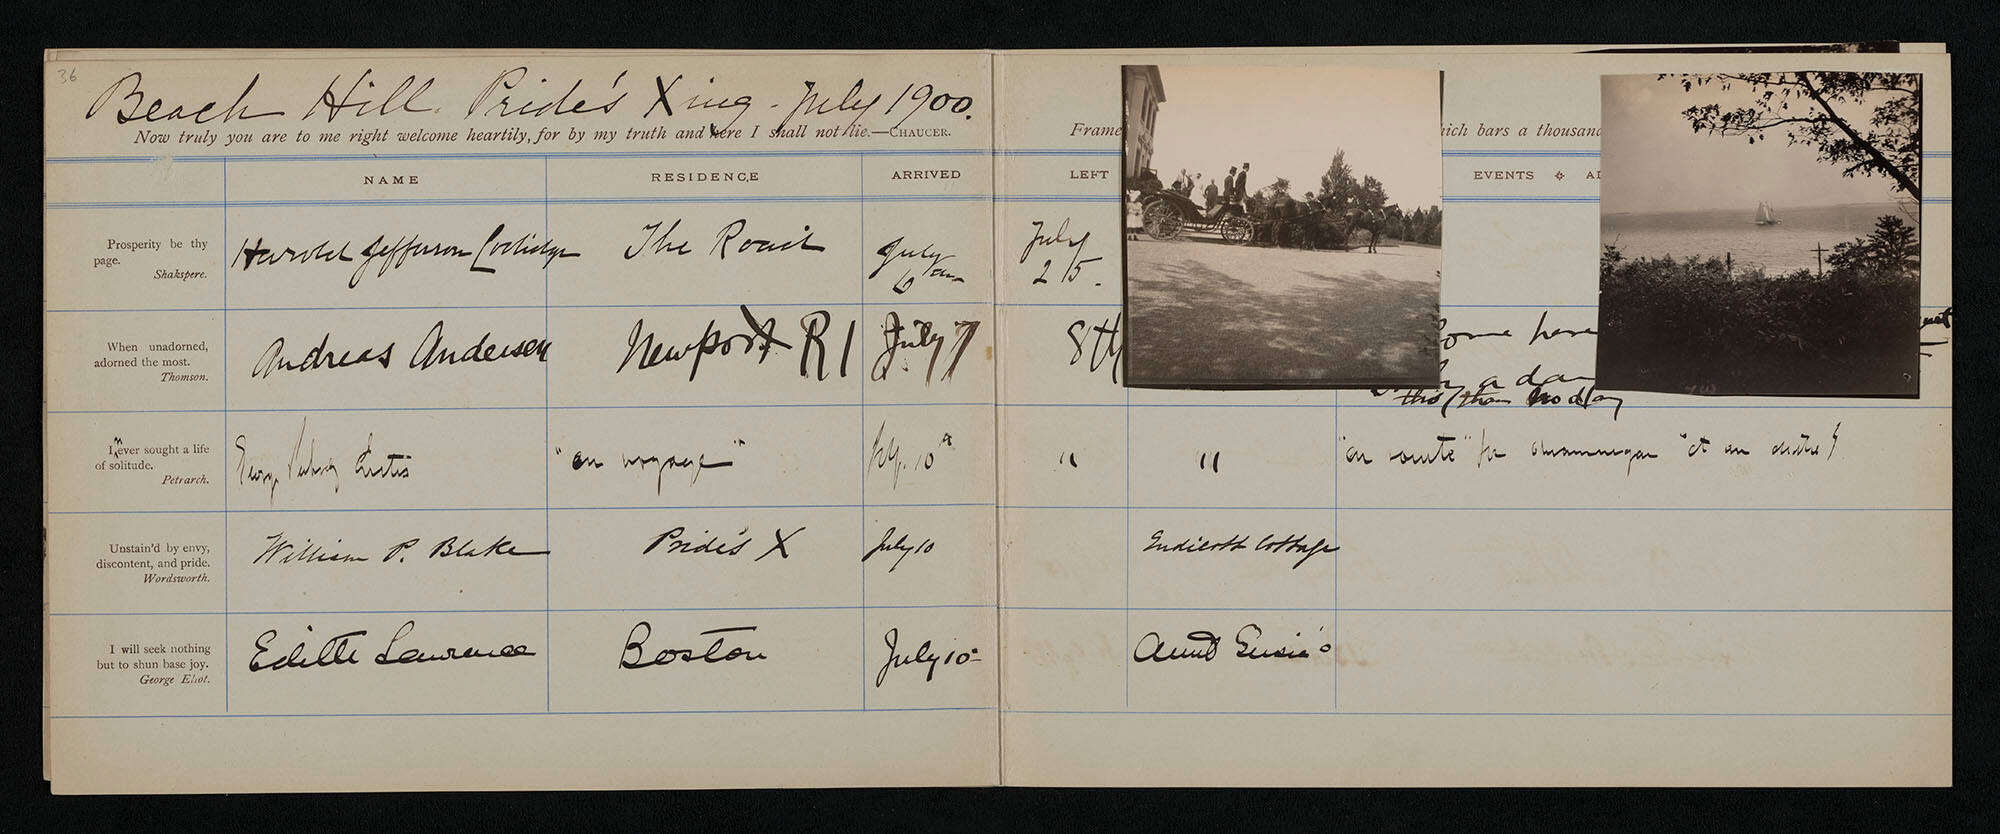 36
Beach Hill. Pride's Xing - July 1900.
Now truly you are to me right welcome heartily, for by my truth and here I shall not lie.—CHAUCER.
Frame
which bars a thousand
NAME RESIDENCE ARRIVED LEFT
EVENTS
Prosperity be thy
page.
Shakspere.
Harold Jefferson Coolidge The Road July 6 am July 25.
When unadorned,
adorned the most.
Thomson.
Andreas Andersen Newport R I July 7 8th
Come here
a day
this/than
I never sought a life
of solitude.
Petrarch.
"en voyage" 10 " "
"en route" for
Unstain'd by envy,
discontent, and pride.
Wordsworth.
William P. Blake Pride's X July 10 Endicott Cottage
I will seek nothing
but to shun base joy.
George Eliot.
Edith Lawrence Boston July 10 Aunt Susie's